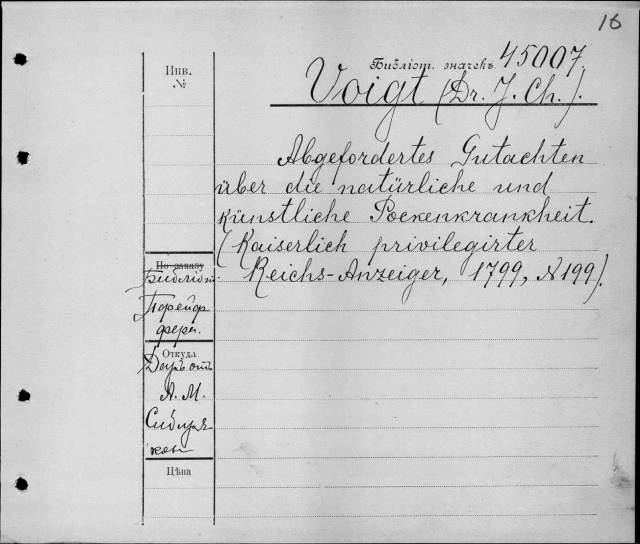 16
Библіот. значекъ 45007.
Инв.
№
Voigt (Dr. J. Ch.).
Abgefordertes Gutachten
über die natürliche und
künstliche Pockenkrankheit.
(Kaiserlich privilegirter
Reichs-Anzeiger, 1799, №199).
По заказу
Библіот.
Порейф
ферн.
Откуда
Даръ отъ
А. М.
Сибиря
кова
Цѣна